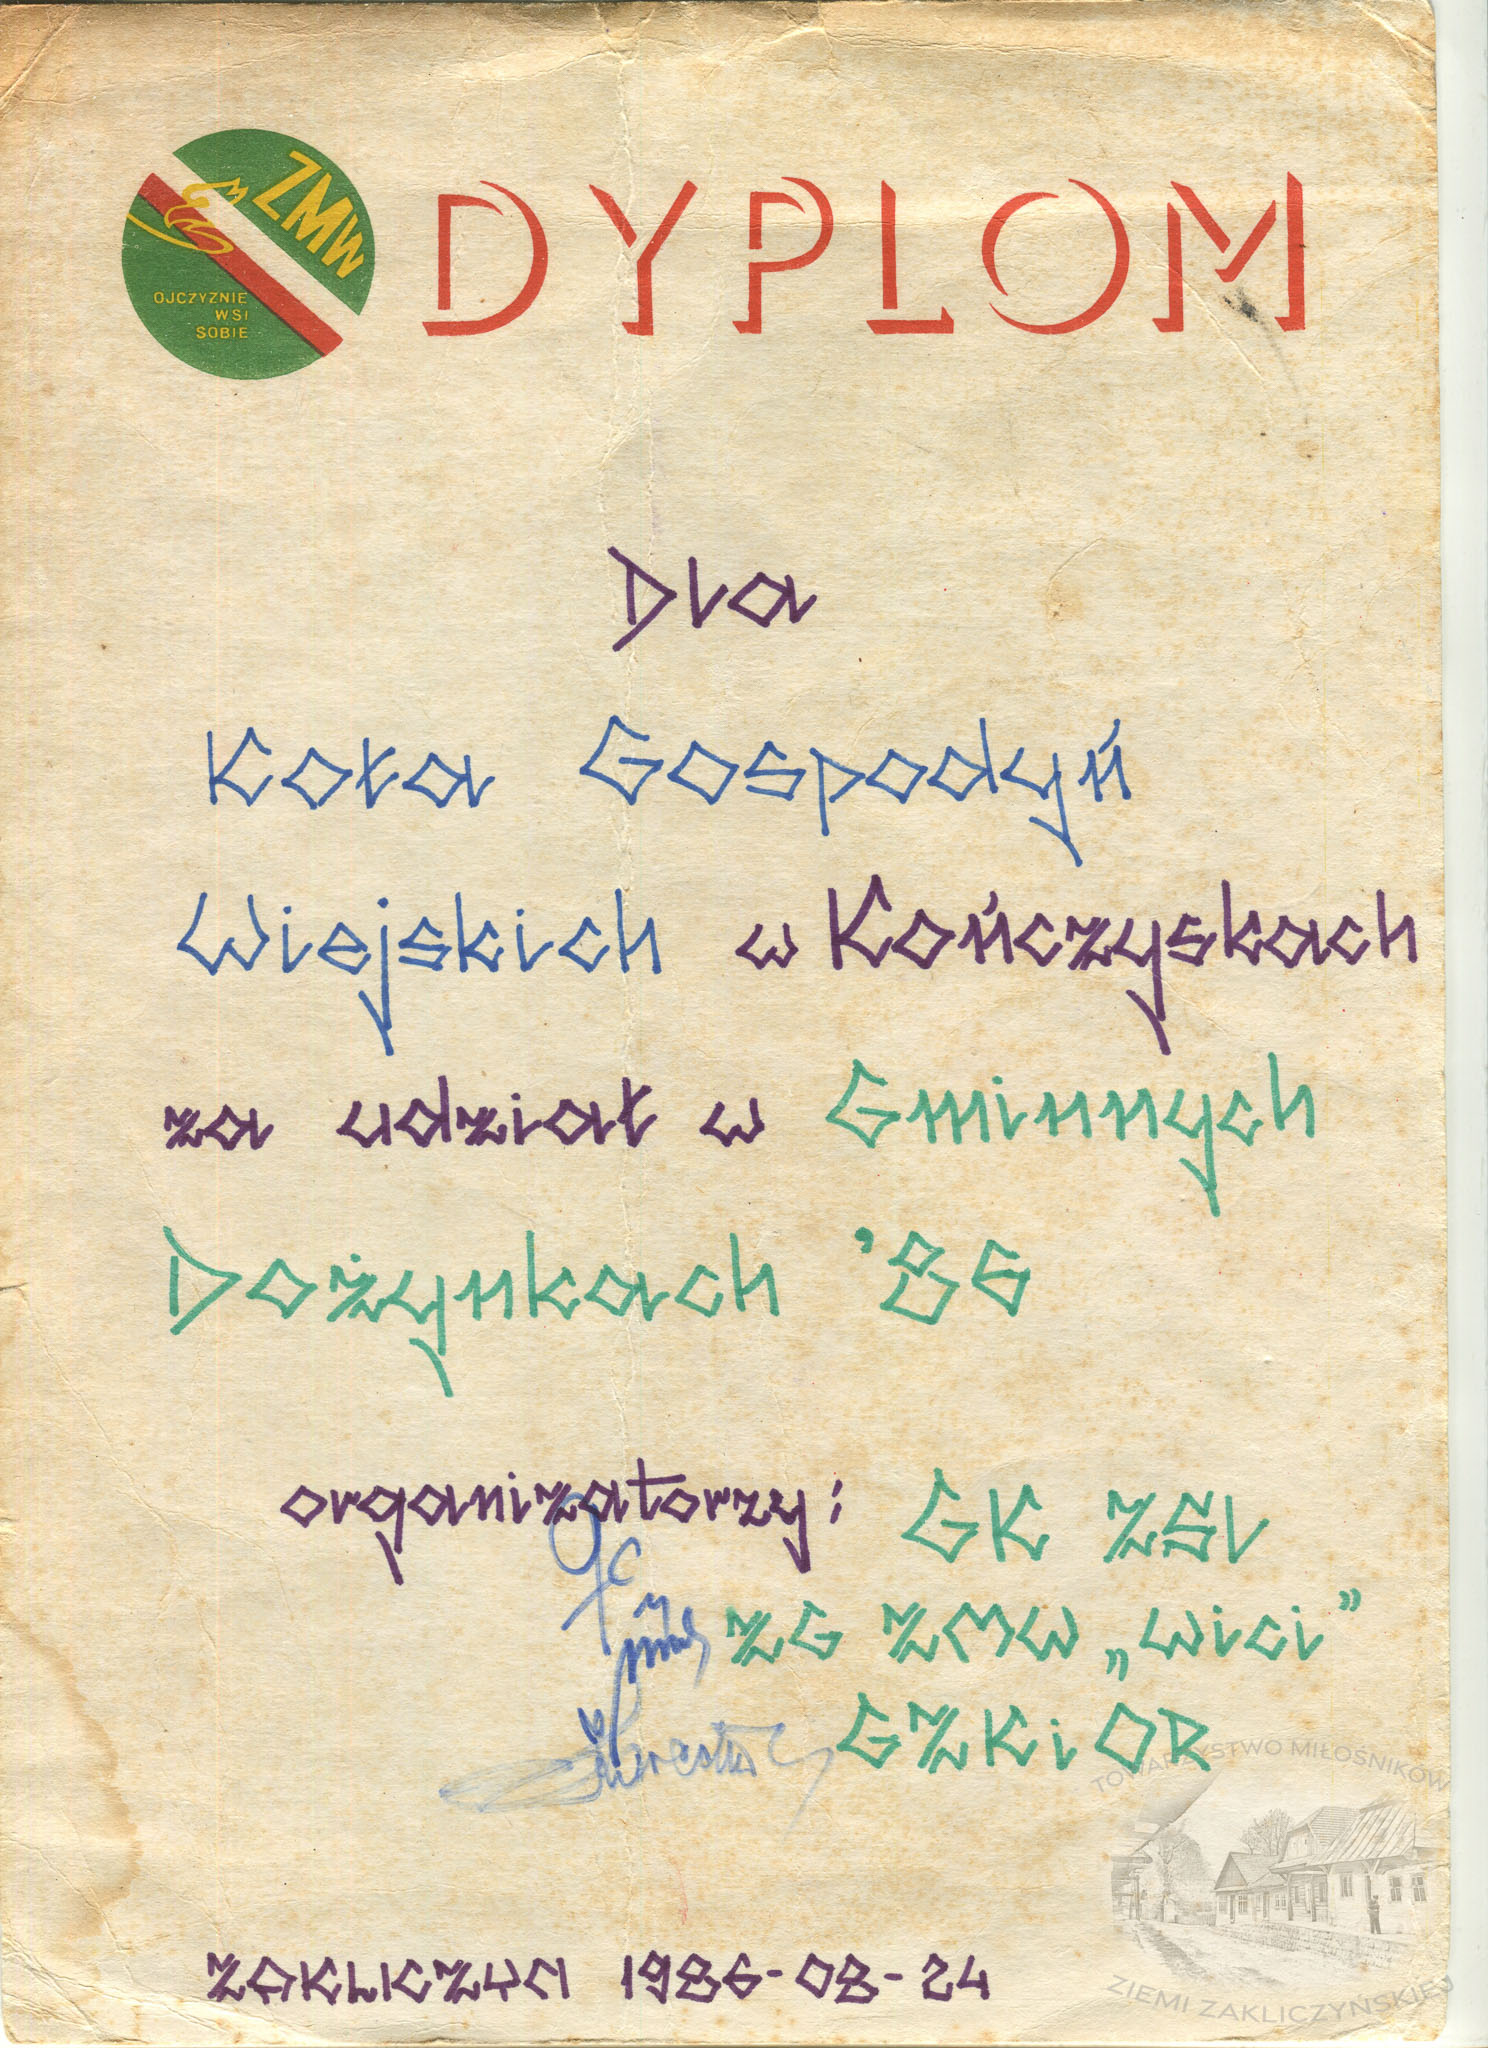 ZMW
OJCZYZNIE
WSI
SOBIE
DYPLOM
Dla
Koła Gospodyń
Wiejskich w Kończyskach
za udział w Gminnych
Dożynkach '86
organizatorzy: GK ZSL
ZG ZMW „Wici”
GZKiOR
ZAKLICZYN 1986-08-24
TOWARZYSTWO MIŁOŚNIKÓW
ZIEMI ZAKLICZYŃSKIEJ